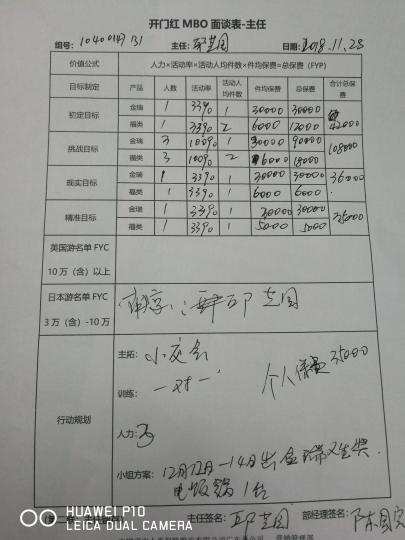 开门红 MBO 面谈表-主任
组号: 1040014731 主任: 芝园 日期: 2018.11.28
价值公式 人力×活动率×活动人均件数×件均保费=总保费（FYP）
目标制定 产品 人数 活动率 活动人均件数 件均保费 总保费 合计总保费
初定目标 金瑞 1 33% 1 30000 30000 42000
福类 1 33% 2 6000 12000
挑战目标 金瑞 3 100% 1 30000 90000 108000
福类 3 100% 2 6000 18000
现实目标 金瑞 1 33% 1 30000 30000 36000
福类 1 33% 1 6000 6000
精准目标 金瑞 1 33% 1 30000 30000 35000
福类 1 33% 1 5000 5000
英国游名单 FYC
10 万（含）以上
日本游名单 FYC
3 万（含）-10 万
芝园
行动规划
主拓: 小
训练: 一对一
个人保费 35000
人力: 3
小组方案: 12月12日—14日出金瑞 奖.
电饭锅 1台
主任签名: 芝园 部经理签名: 陈国
HUAWEI P10
LEICA DUAL CAMERA